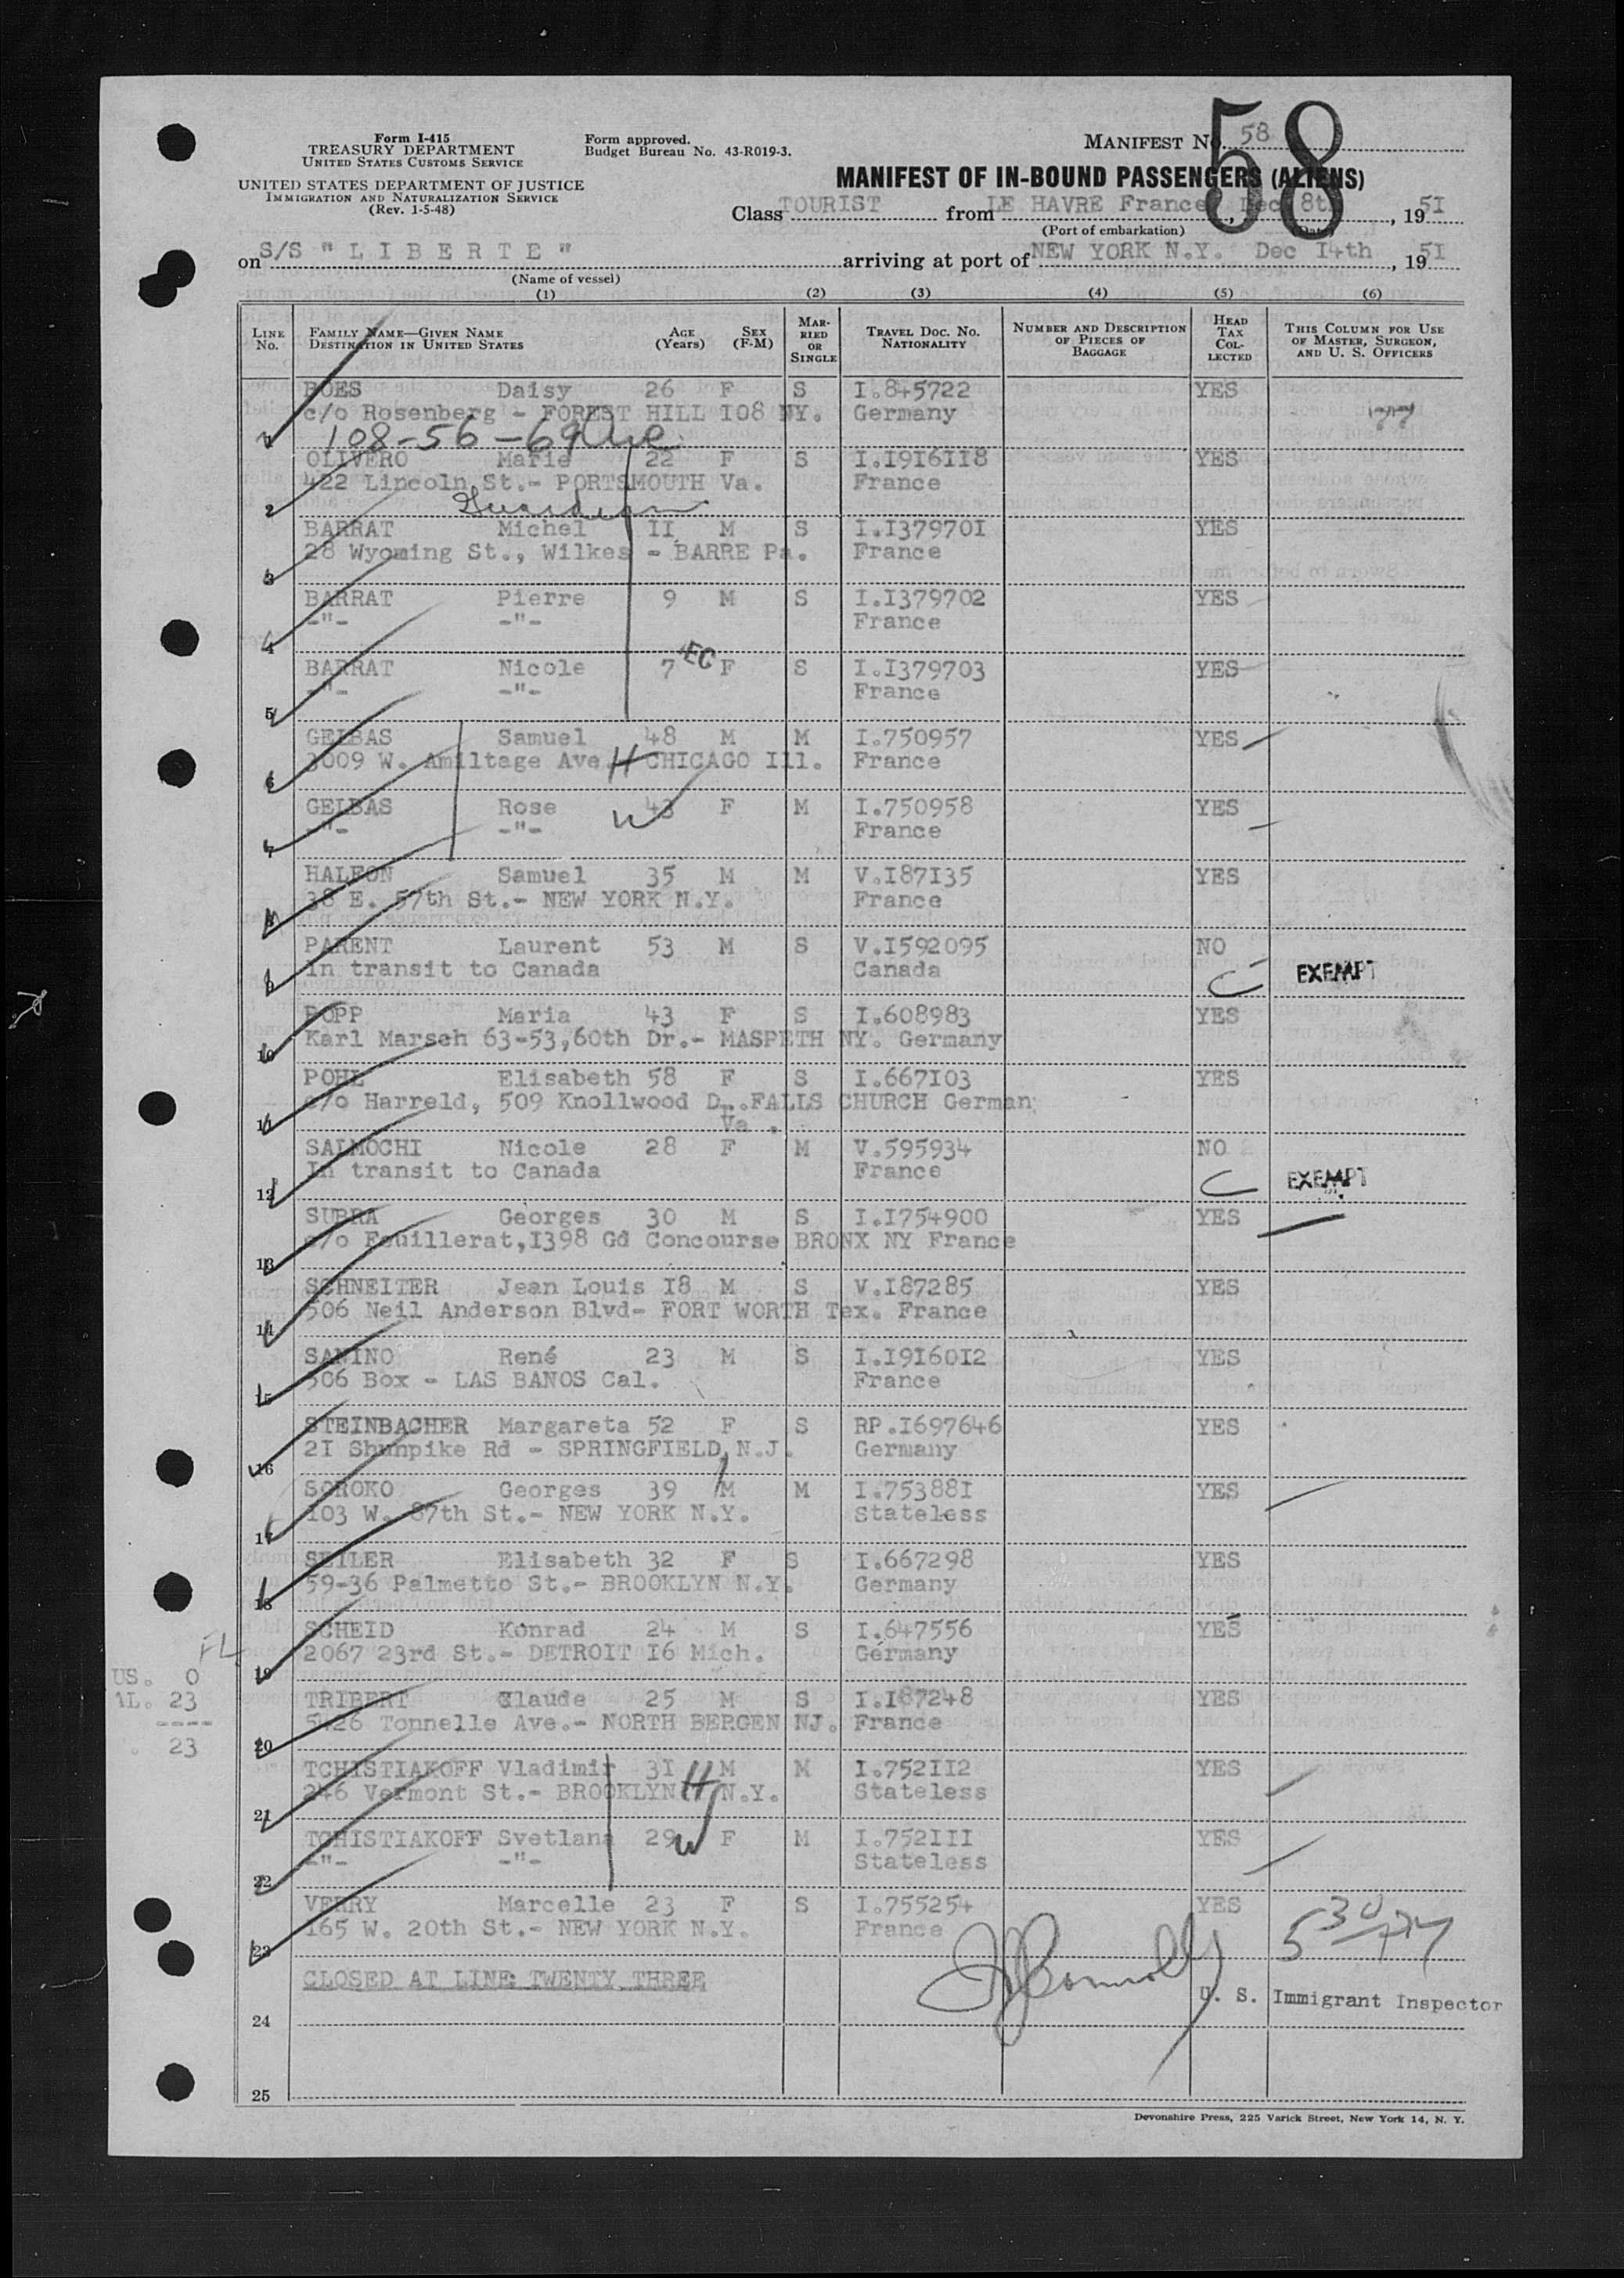 Form I-415
TREASURY DEPARTMENT
UNITED STATES CUSTOMS SERVICE
UNITED STATES DEPARTMENT OF JUSTICE
IMMIGRATION AND NATURALIZATION SERVICE
(Rev. 1-5-48)
Form approved.
Budget Bureau No. 43-R019-3.
MANIFEST No. 58
58
MANIFEST OF IN-BOUND PASSENGERS (ALIENS)
Class TOURIST from LE HAVRE France, Dec 8th, 1951
(Port of embarkation) (Date)
on S/S " L I B E R T E " arriving at port of NEW YORK N.Y. Dec I4th, 1951
(Name of vessel)
(1) (2) (3) (4) (5) (6)
LINE No. FAMILY NAME—GIVEN NAME DESTINATION IN UNITED STATES AGE (Years) SEX (F-M) MARRIED OR SINGLE TRAVEL DOC. NO. NATIONALITY NUMBER AND DESCRIPTION OF PIECES OF BAGGAGE HEAD TAX COLLECTED THIS COLUMN FOR USE OF MASTER, SURGEON, AND U. S. OFFICERS
BOES Daisy 26 F S I.845722 YES
c/o Rosenberg - FOREST HILL I08 NY. Germany
1 108-56-69 Ave
OLIVERO Marie 22 F S I.I9I6II8 YES
422 Lincoln St.- PORTSMOUTH Va. France
2 Guardian
BARRAT Michel II M S I.I37970I YES
28 Wyoming St., Wilkes - BARRE Pa. France
3
BARRAT Pierre 9 M S I.I379702 YES
-"- -"- France
4
BARRAT Nicole 7 F S I.I379703 YES
-"- -"- France
5
GELBAS Samuel 48 M M I.750957 YES
3009 W. Amiltage Ave H CHICAGO Ill. France
6
GELBAS Rose 43 F M I.750958 YES
-"- -"- W France
7
HALFON Samuel 35 M M V.I87I35 YES
38 E. 57th St.- NEW YORK N.Y. France
8
PARENT Laurent 53 M S V.I592095 NO
In transit to Canada Canada C EXEMPT
9
POPP Maria 43 F S I.608983 YES
Karl Marseh 63-53,60th Dr.- MASPETH NY. Germany
10
POHL Elisabeth 58 F S I.667I03 YES
c/o Harreld, 509 Knollwood D..FALLS CHURCH German
11 Va.
SALMOCHI Nicole 28 F M V.595934 NO
In transit to Canada France C EXEMPT
12
SUBRA Georges 30 M S I.I754900 YES
c/o Fouillerat,I398 Gd Concourse BRONX NY France
13
SCHNEITER Jean Louis I8 M S V.I87285 YES
506 Neil Anderson Blvd- FORT WORTH Tex. France
14
SANINO René 23 M S I.I9I60I2 YES
506 Box - LAS BANOS Cal. France
15
STEINBACHER Margareta 52 F S RP.I697646 YES
2I Shunpike Rd - SPRINGFIELD, N.J. Germany
16
SOROKO Georges 39 M M I.75388I YES
I03 W. 87th St.- NEW YORK N.Y. Stateless
17
SEILER Elisabeth 32 F S I.667298 YES
59-36 Palmetto St.- BROOKLYN N.Y. Germany
18
SCHEID Konrad 24 M S I.647556 YES
2067 23rd St.- DETROIT I6 Mich. Germany
19
US. 0
AL. 23
----
23
TRIBERT Claude 25 M S I.I87248 YES
5426 Tonnelle Ave.- NORTH BERGEN NJ. France
20
TCHISTIAKOFF Vladimir 3I M M I.752II2 YES
246 Vermont St.- BROOKLYN H N.Y. Stateless
21
TCHISTIAKOFF Svetlana 29 W F M I.752III YES
-"- -"- Stateless
22
VERRY Marcelle 23 F S I.755254 YES
I65 W. 20th St.- NEW YORK N.Y. France
23
CLOSED AT LINE TWENTY THREE
U. S. Immigrant Inspector
24
25
Devonshire Press, 225 Varick Street, New York 14, N. Y.